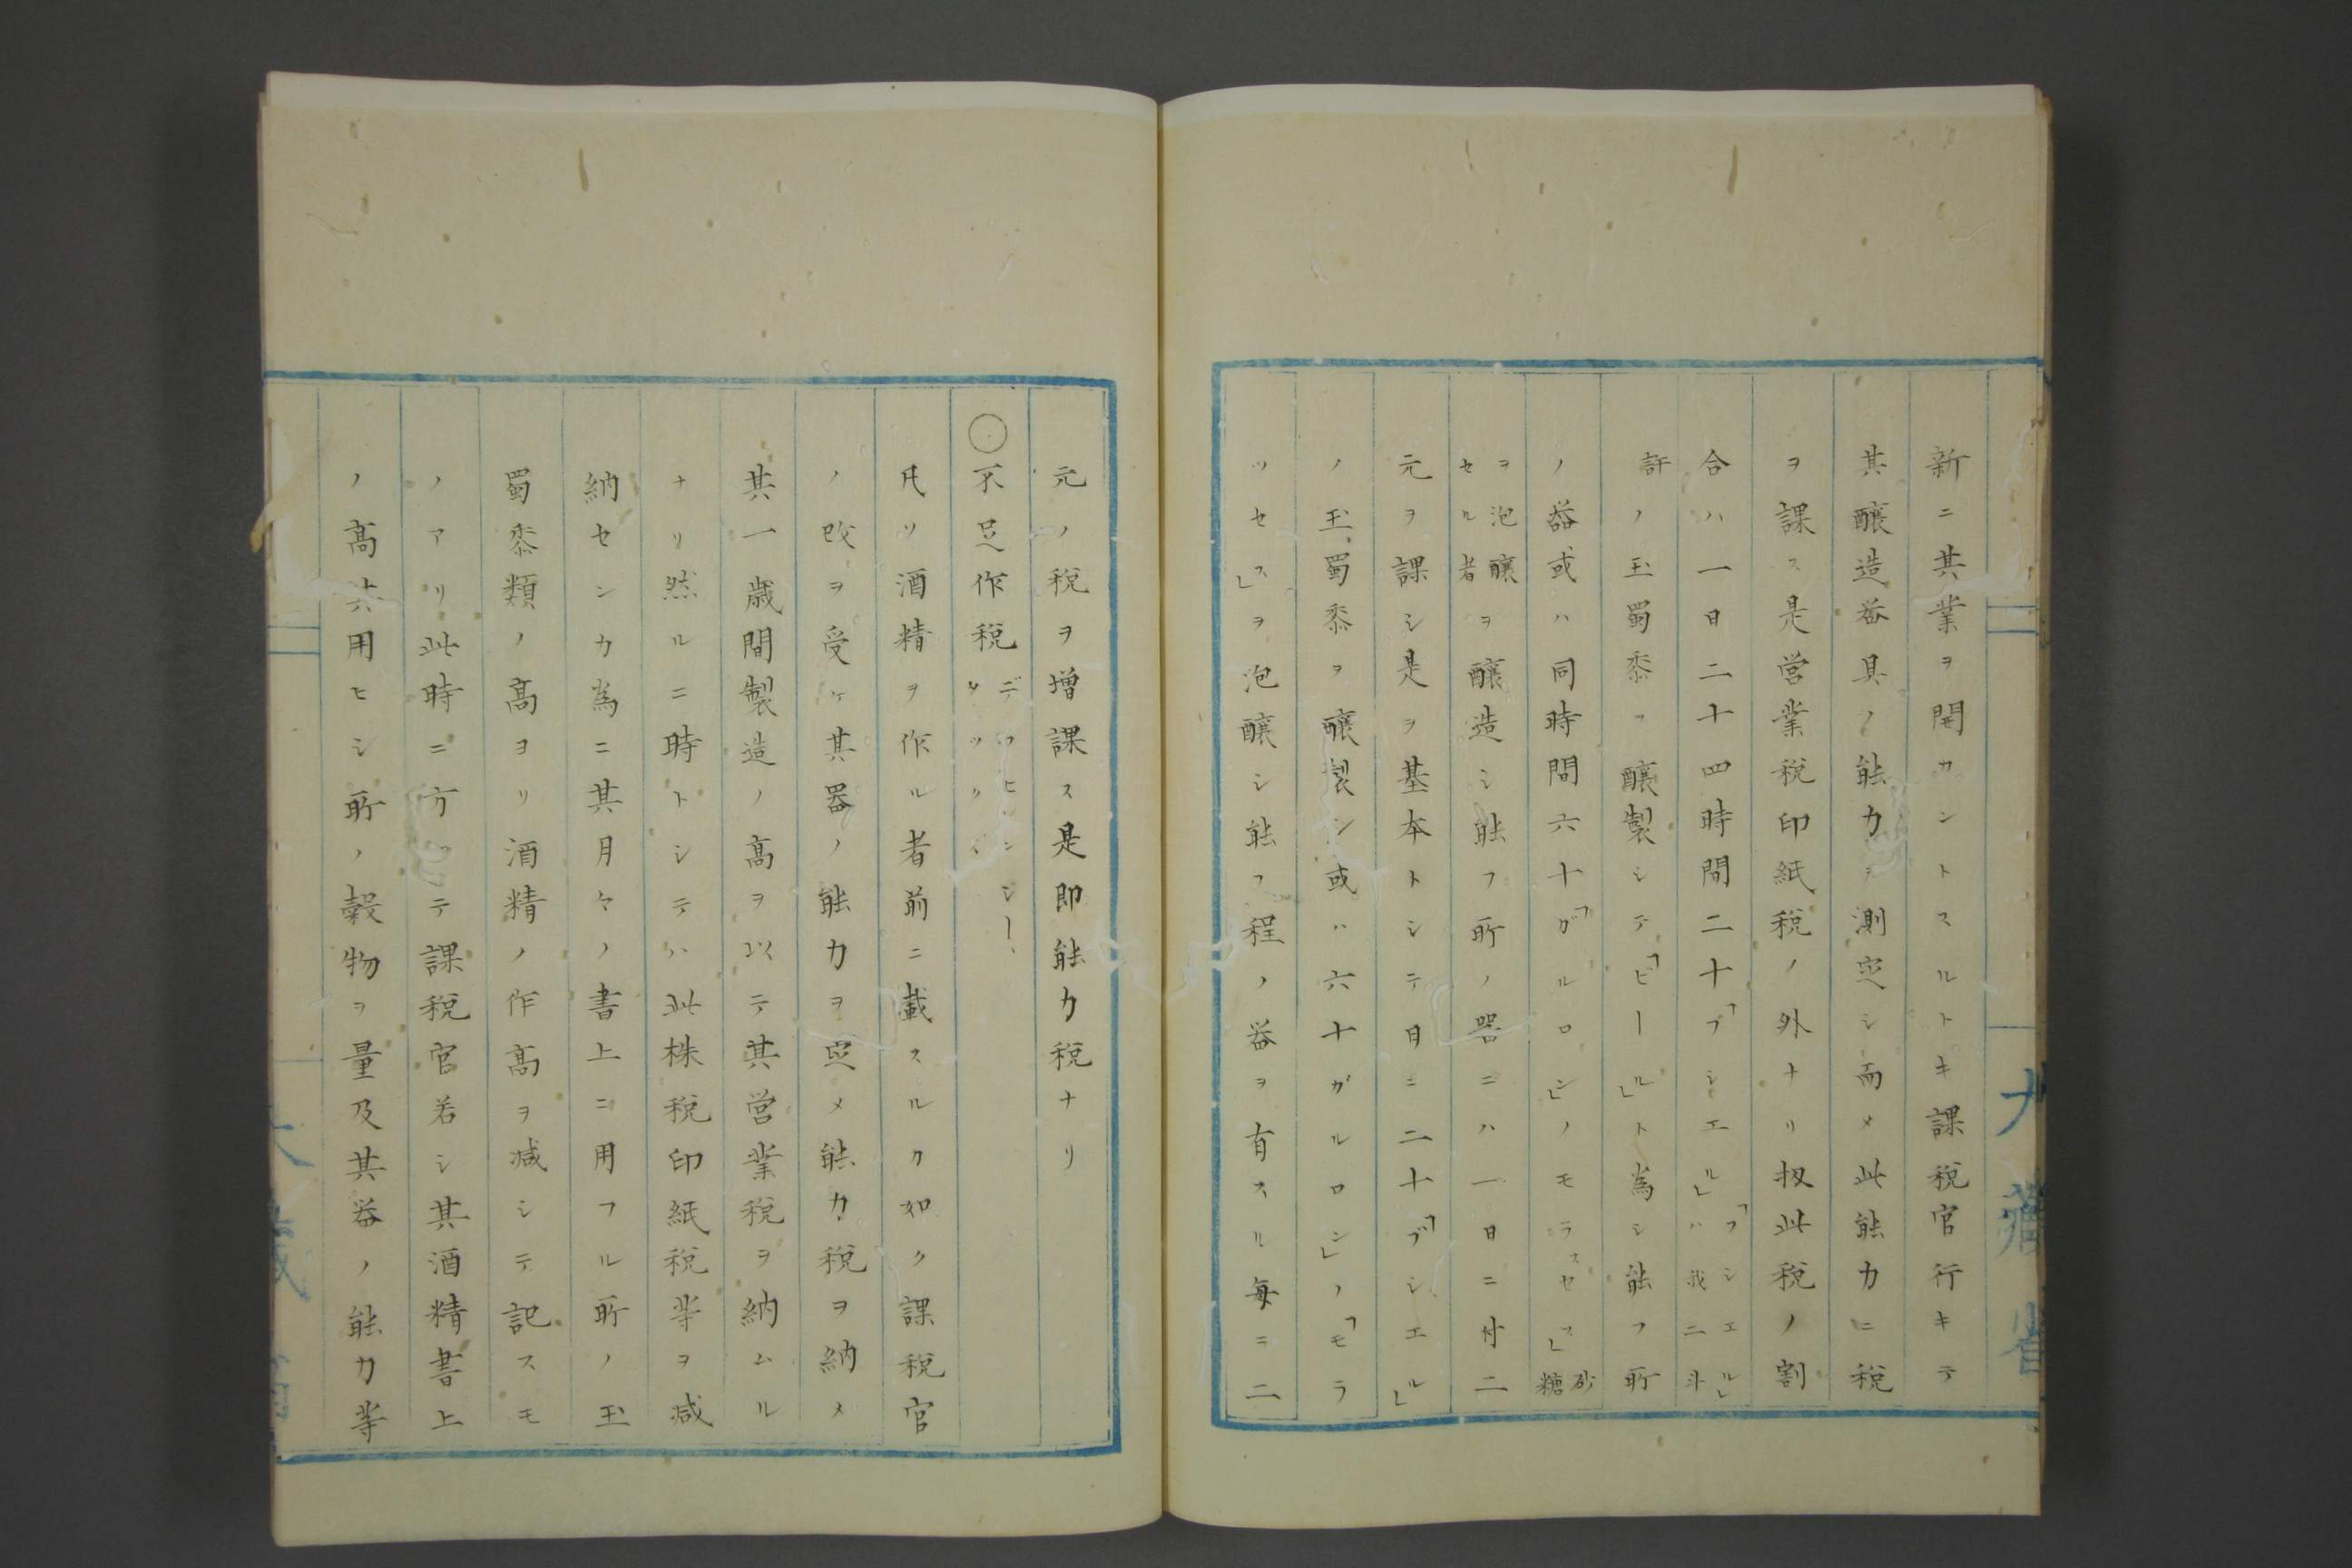 新ニ其業ヲ開カントスルトキ課税官行キテ
其醸造器具ノ能力ヲ測定シ而メ此能力ニ税
ヲ課ス是営業税印紙税ノ外ナリ扨此税ノ割
合ハ一日二十四時間二十「ブシエル」ハ「フシエル」我二斗
許ノ玉蜀黍ヲ醸製シテ「ビール」ト為シ能フ所
ノ器或ハ同時間六十「ガルロン」ノモラスセス」砂糖
ヲ泡醸セル者ヲ醸造シ能フ所ノ器ニハ一日ニ付二
元ヲ課シ是ヲ基本トシテ日ニ二十「ブシエル」
ノ玉蜀黍ヲ醸製シ或ハ六十ガルロン」ノ「モラ
ツセス」ヲ泡醸シ能フ程ノ器ヲ有スル毎ニ二
大藏省
元ノ税ヲ増課ス是即能力税ナリ
○不足作税
凡ソ酒精ヲ作ル者前ニ載スルカ如ク課税官
ノ改ヲ受ケ其器ノ能力ヲ定メ能力税ヲ納メ
其一歳間製造ノ高ヲ以テ其営業税ヲ納ムル
ナリ然ルニ時トシテハ此株税印紙税等ヲ減
納センカ為ニ其月々ノ書上ニ用フル所ノ玉
蜀黍類ノ高ヨリ酒精ノ作高ヲ減シテ記スモ
ノアリ此時ニ方ッテ課税官若シ其酒精書上
ノ高共用ヒシ所ノ穀物ヲ量及其器ノ能力等